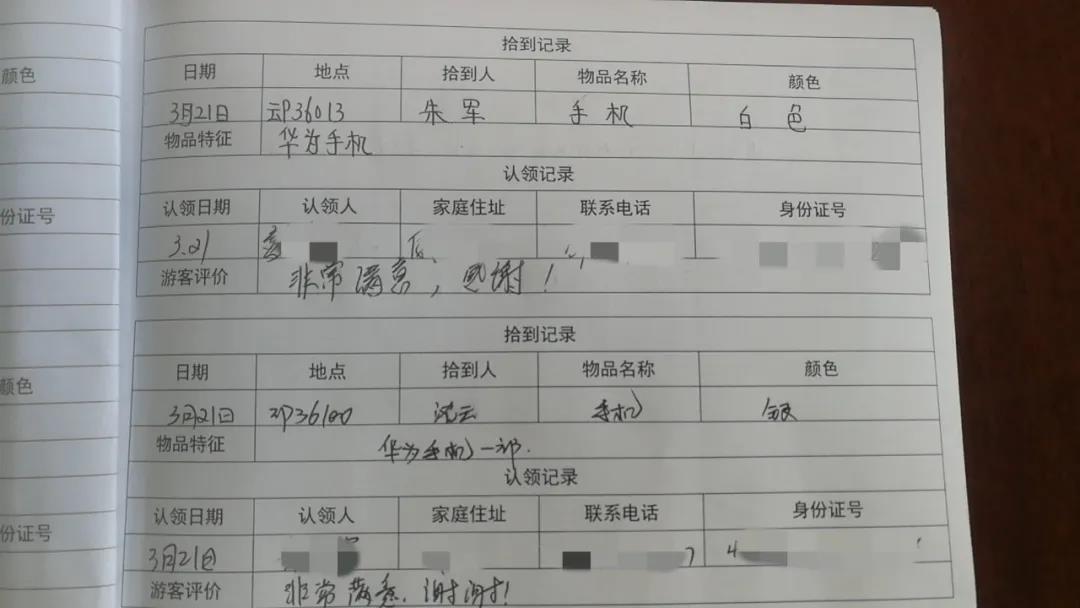 颜色
份证号
颜色
份证号
拾到记录
日期 地点 拾到人 物品名称 颜色
3月21日 云P36013 朱军 手机 白色
物品特征 华为手机
认领记录
认领日期 认领人 家庭住址 联系电话 身份证号
3.21
游客评价 非常满意，感谢！
拾到记录
日期 地点 拾到人 物品名称 颜色
3月21日 云P36100 沈云 手机 银
物品特征 华为手机一部.
认领记录
认领日期 认领人 家庭住址 联系电话 身份证号
3月21日 7 4
游客评价 非常满意.谢谢!